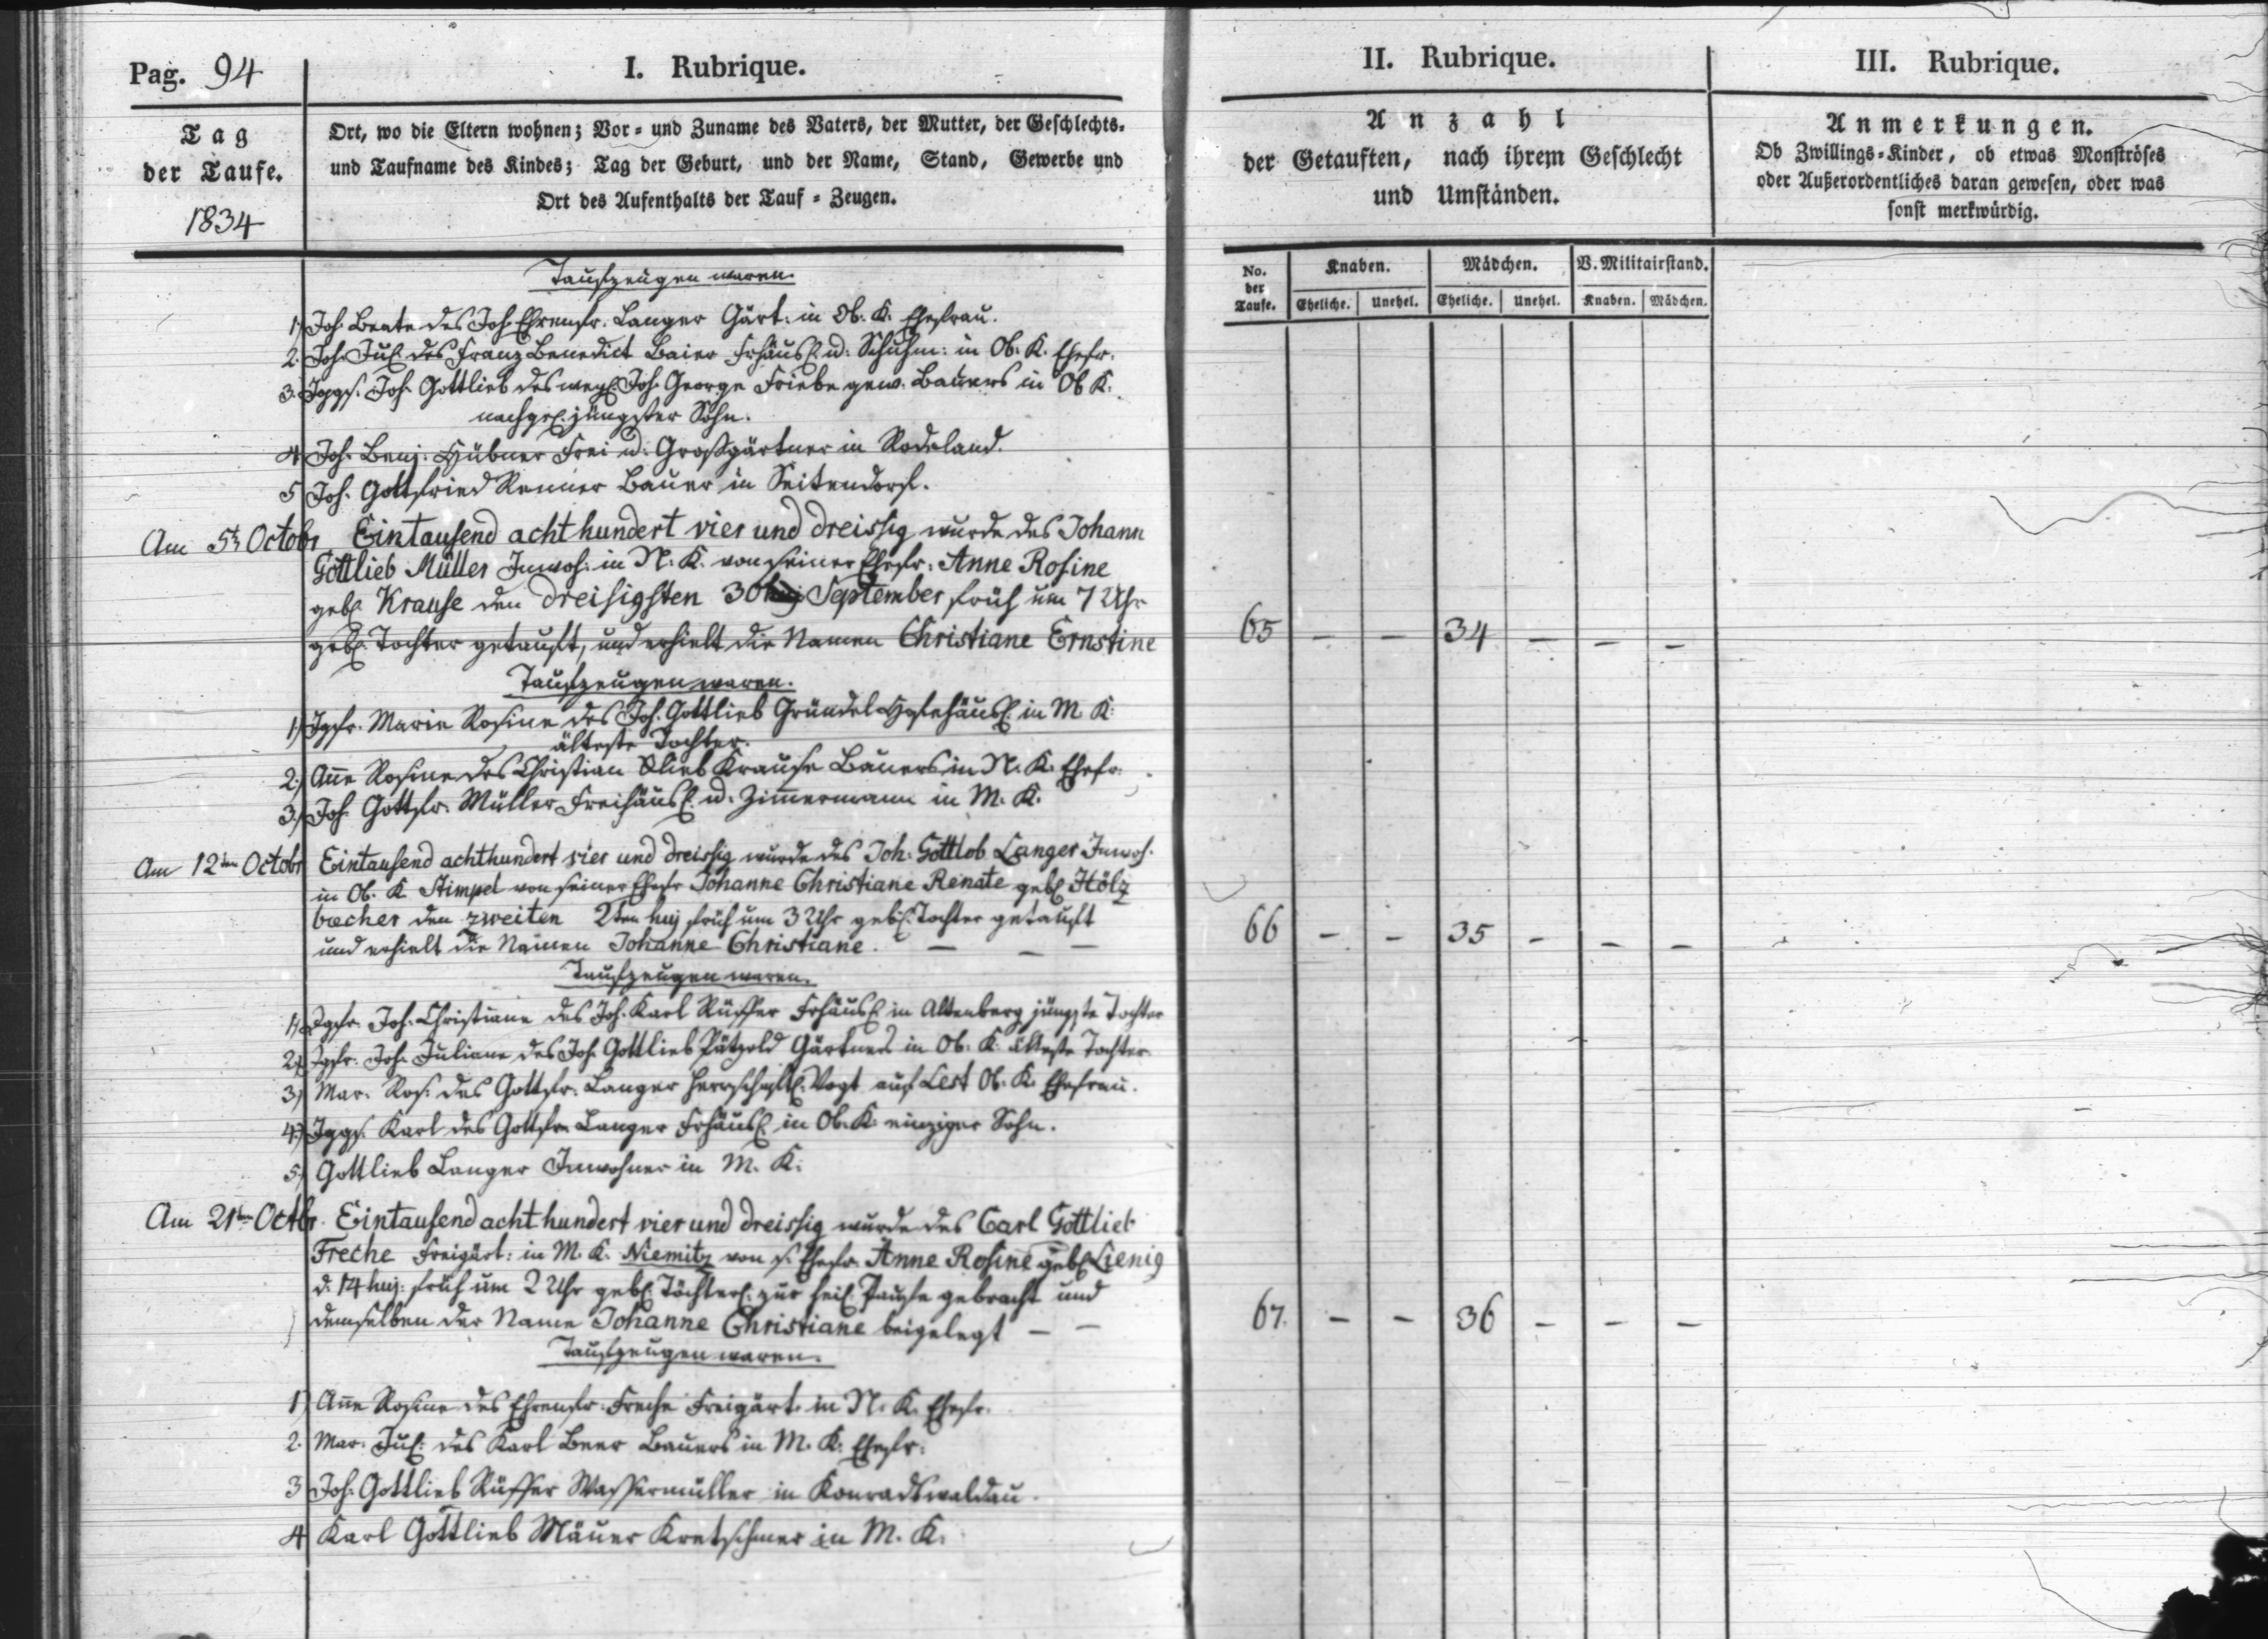 Pag. 94
I. Rubrique.
Tag
der Taufe.
1834
Ort, wo die Eltern wohnen; Vor- und Zuname des Vaters, der Mutter, der Geschlechts-
und Taufname des Kindes; Tag der Geburt, und der Name, Stand, Gewerbe und
Ort des Aufenthalts der Tauf-Zeugen.
Taufzeugen waren.
1) Joh. Beate des Joh. Ehrenfr. Langer Gärt: in Ob. K. Ehefrau.
2. Joh. Jul. des Franz Benedict Baier Frhäusl. u. Schuhm: in Ob. K. Ehefr.
3. Jggs. Joh. Gottlieb des weyl. Joh. George Friebe gew. Bauers in Ob K.
nachgel. jüngster Sohn.
4 Joh. Benj. Hübner Frei u. Großgärtner in Rodeland.
5 Joh. Gottfried Renner Bauer in Seitendorf.
Am 5t Octobr Eintausend acht hundert vier und dreissig wurde des Johann
Gottlieb Müller Inwoh: in N. K. von seiner Ehefr. Anne Rosine
geb. Krause den dreisigsten 30 September früh um 7 Uhr
geb. Tochter getauft, und erhielt die Namen Christiane Ernstine
Taufzeugen waren.
1) Jgfr. Marie Rosine des Joh. Gottlieb Gründel Hofehäusl. in M. K.
älteste Tochter.
2.) Anne Rosine des Christian Glieb Krause Bauers in N. K. Ehefr.
3.) Joh. Gottfr. Müller Freihäusl. u. Zimmermann in M. K.
Am 12ten Octobr Eintausend achthundert vier und dreissig wurde des Joh. Gottlob Langer Inwoh.
in Ob. K. Stimpel von seiner Ehefr Johanne Christiane Renate geb. Hölz
becher den zweiten 2ten huj früh um 3 Uhr geb. Tochter getauft
und erhielt die Namen Johanne Christiane. — — —
Taufzeugen waren.
1) Jgfr. Joh. Christiane des Joh. Karl Rüffer Frhäusl. in Altenberg jüngste Tochter
2) Jgfr. Joh. Juliane des Joh. Gottlieb Pätzold Gärtners in Ob. K. älteste Tochter
3) Mar. Ros. des Gottfr. Langer herrschaftl. Vogt auf Lest Ob. K. Ehefrau.
4.) Jggs. Karl des Gottfr. Langer Frhäusl. in Ob. K. einziger Sohn.
5) Gottlieb Langer Inwohner in M. K.
Am 21ten Octbr. Eintausend acht hundert vier und dreissig wurde des Carl Gottlieb
Freche Freigärt: in M. K. Niemitz von s. Ehefr. Anne Rosine geb. Lienig
d. 14 huj. früh um 2 Uhr geb. Töchterl. zur heil. Taufe gebracht und
demselben der Name Johanne Christiane beigelegt — —
Taufzeugen waren.
1) Anne Rosine des Ehrenfr. Freche Freigärt. in N. K. Ehefr.
2. Mar. Jul. des Karl Beer Bauers in M. K. Ehefr.
3 Joh. Gottlieb Rüffer Wassermüller in Konradswaldau.
4 Karl Gottlieb Mäuer Kretschmer in M. K.
II. Rubrique.
Anzahl
der Getauften, nach ihrem Geschlecht
und Umständen.
No. der Taufe. Knaben. Mädchen. V. Militairstand.
Eheliche. Unehel. Eheliche. Unehel. Knaben. Mädchen.
65 – – 34 – – –
66 – – 35 – – –
67. – – 36 – – –
III. Rubrique.
Anmerkungen.
Ob Zwillings-Kinder, ob etwas Monströses
oder Außerordentliches daran gewesen, oder was
sonst merkwürdig.